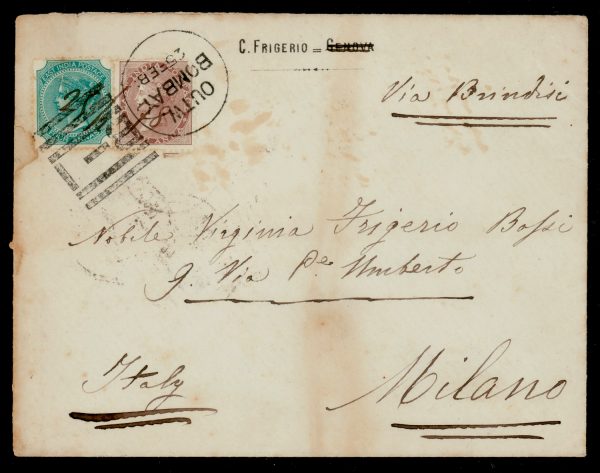 C. FRIGERIO = GENOVA
EAST INDIA POSTAGE
BOMBAY
OUTW.
25 FEB
Via Brindisi
Nobile Virginia Frigerio Bossi
9. Via Pe Umberto
Italy
Milano